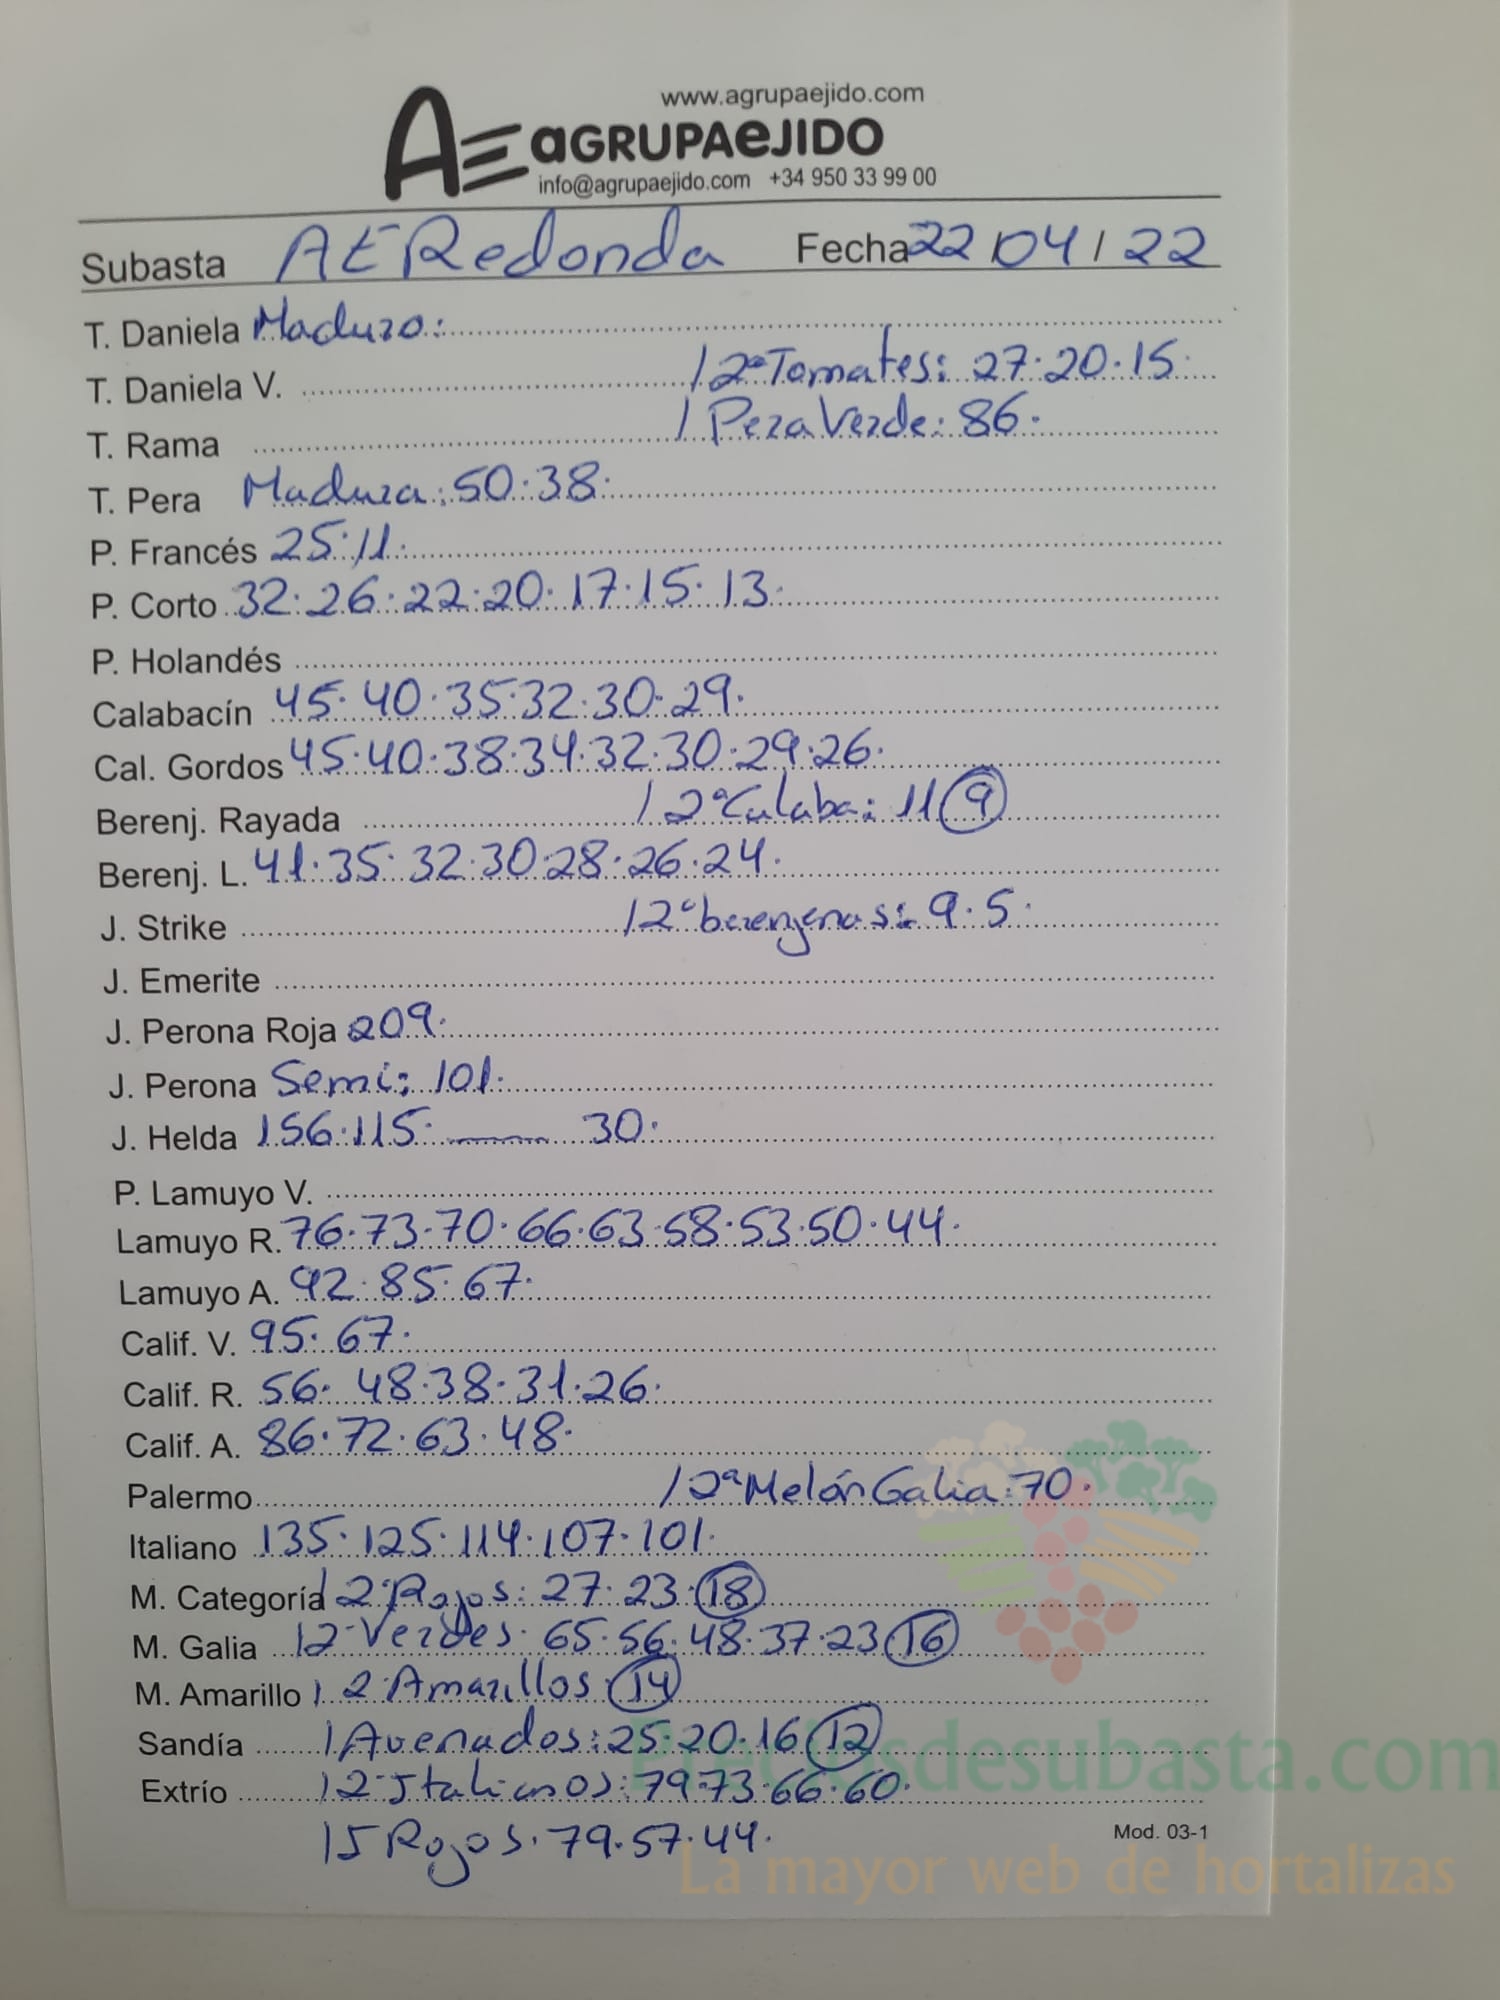 www.agrupaejido.com
AE aGRUPAeJIDO
info@agrupaejido.com +34 950 33 99 00
Subasta AE Redonda Fecha 22/04/22
T. Daniela Maduro:
T. Daniela V. / 2ª Tomates: 27·20·15
T. Rama / Pera Verde: 86·
T. Pera Madura: 50·38·
P. Francés 25·11·
P. Corto 32·26·22·20·17·15·13·
P. Holandés
Calabacín 45·40·35·32·30·29·
Cal. Gordos 45·40·38·34·32·30·29·26·
Berenj. Rayada / 2ª Calaba: 11 (9)
Berenj. L. 41·35·32·30·28·26·24·
J. Strike / 2ª berenjenas: 9·5·
J. Emerite
J. Perona Roja 209·
J. Perona Semi: 101·
J. Helda 156·115· — 30·
P. Lamuyo V.
Lamuyo R. 76·73·70·66·63·58·53·50·44·
Lamuyo A. 92·85·67·
Calif. V. 95·67·
Calif. R. 56·48·38·31·26·
Calif. A. 86·72·63·48·
Palermo / 2ª Melón Galia: 70·
Italiano 135·125·114·107·101·
M. Categoría / 2ª Rojos: 27·23·(18)
M. Galia / 2ª Verdes· 65·56·48·37·23 (16)
M. Amarillo / 2ª Amarillos: (14)
Sandía / Avenados: 25·20·16 (12)
Extrío / 2ª Italianos: 79·73·66·60·
/ 5 Rojos· 79·57·44·
Mod. 03-1
Preciosdesubasta.com
La mayor web de hortalizas